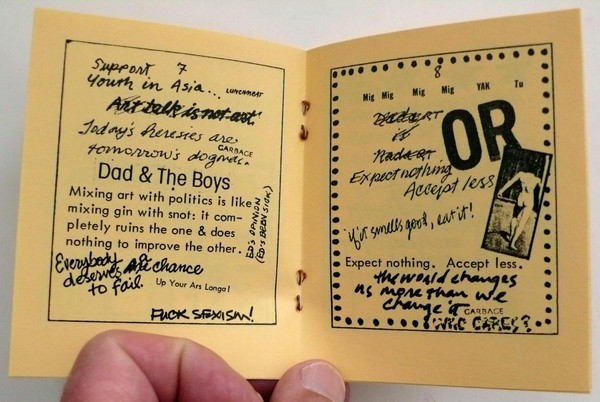 Support 7
Youth in Asia... LUNCHMEAT
Art talk is not art.
Today's heresies are
GARBAGE
tomorrow's dogmas.
Dad & The Boys
Mixing art with politics is like
mixing gin with snot: it com-
pletely ruins the one & does
nothing to improve the other.
ED'S OPINION
(ED'S BEEN SICK)
Everybody
deserves a chance
to fail.
Up Your Ars Longa!
FUCK SEXISM!
8
Mig Mig Mig Mig YAK Tu
ART
is
OR
Expect nothing
Accept less
"if it smells good, eat it!
Expect nothing. Accept less.
the world changes
us more than we
change it
GARBAGE
WHO CARES?